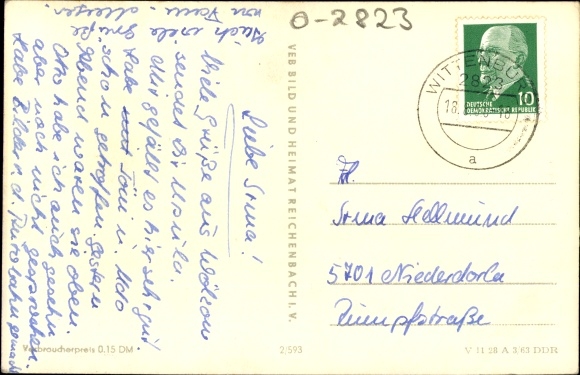 O-2823
Liebe Irma!
Viele Grüße aus Wölzow
sendet Dir Ursula.
Mir gefällt es hier sehr gut.
Habe Toni u. Udo
schon getroffen. Gestern
Abend waren sie oben.
Otto habe ich auch gesehen
aber noch nicht gesprochen.
Habe Bilder v. d. Autobahn gemacht
Auch viele Grüße
von Fam.
VEB BILD UND HEIMAT REICHENBACH I. V.
WITTENBURG
2823
18.
a
10
DEUTSCHE
DEMOKRATISCHE REPUBLIK
Fr.
Irma Hellmund
5701 Niederdorla
Rumpfstraße
Verbraucherpreis 0,15 DM
2/593
V 11 28 A 3/63 DDR